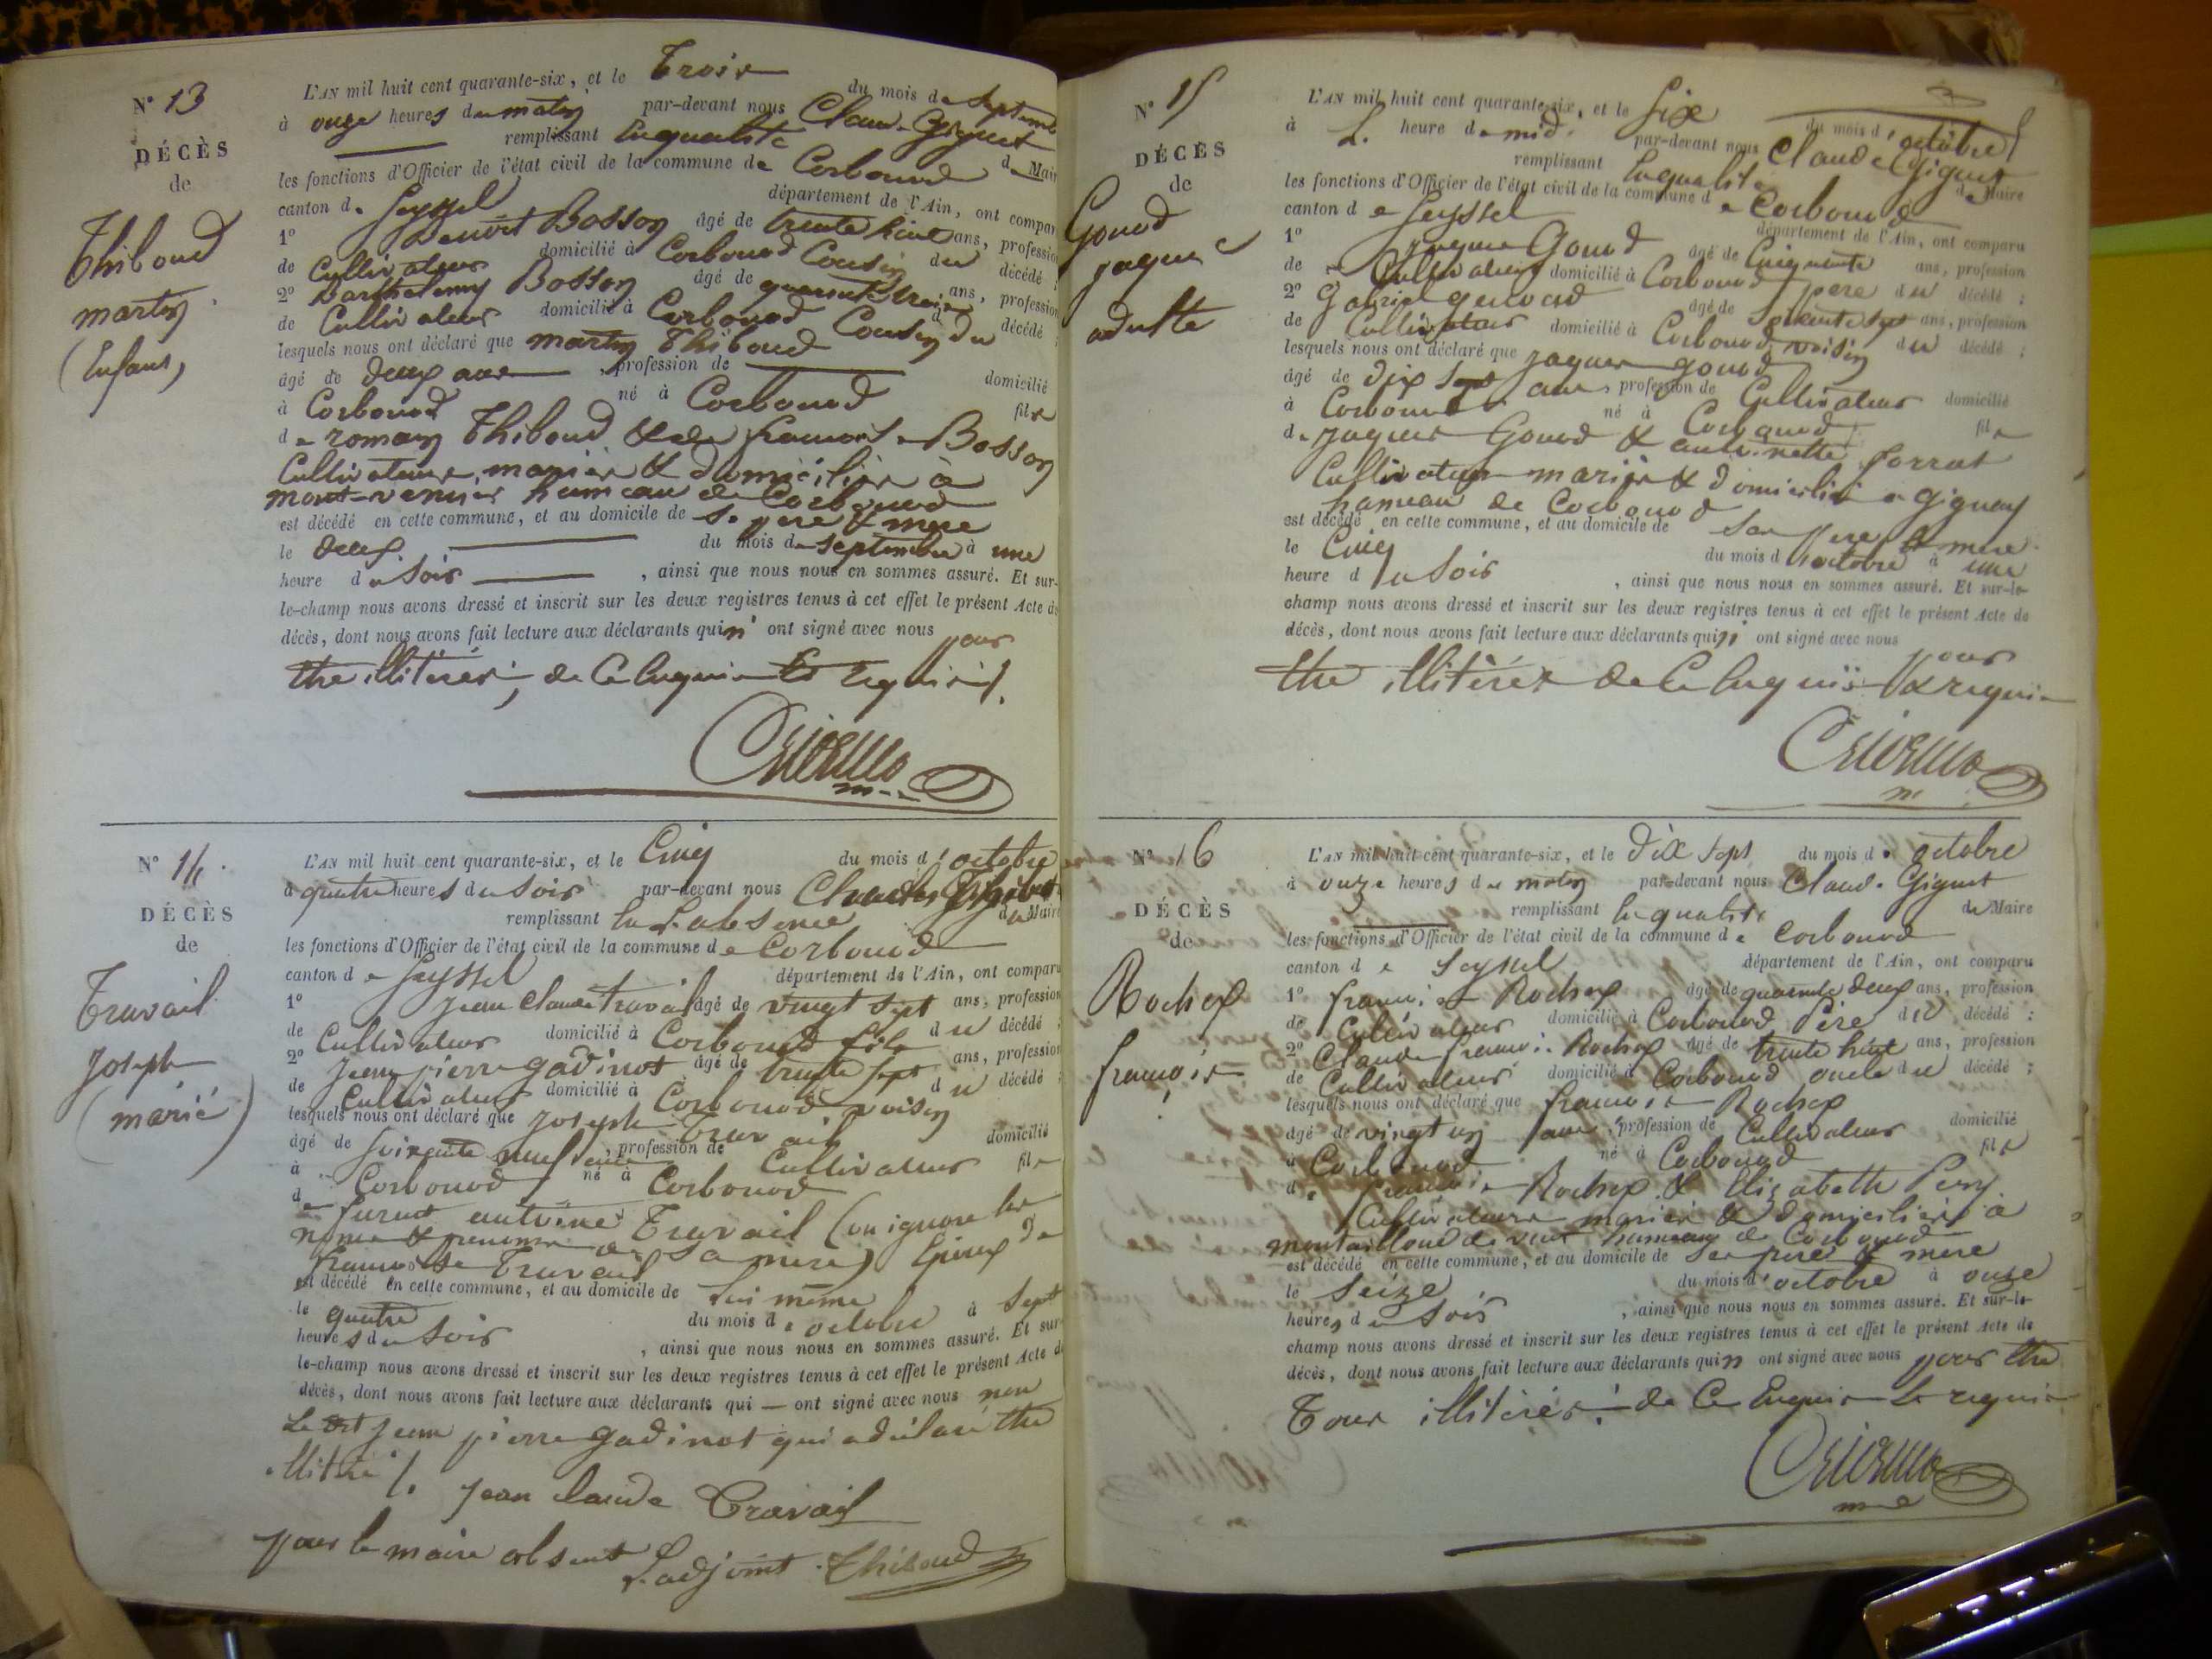 N° 13
DÉCÈS
de
Thiboud
martin
(Enfans)
L'AN mil huit cent quarante-six, et le Trois du mois de Septembre
à onze heures du matin par-devant nous Claude Giguet
remplissant En qualité de Maire
les fonctions d'Officier de l'état civil de la commune de Corbonod
canton de Seyssel département de l'Ain, ont comparu
1° Benoit Bosson âgé de trente huit ans, profession
de Cultivateur domicilié à Corbonod Cousin du décédé ;
2° Barthelemy Bosson âgé de quarente trois ans, profession
de Cultivateur domicilié à Corbonod Cousin du décédé ;
lesquels nous ont déclaré que martin Thiboud
âgé de deux ans, profession de domicilié
à Corbonod né à Corbonod fils
de romain Thiboud & de françoise Bosson
Cultivateurs mariés & domiciliés à
mont-venier hameau de Corbonod
est décédé en cette commune, et au domicile de Se pere & mere
le deux du mois de septembre à une
heure du Soir, ainsi que nous nous en sommes assuré. Et sur-
le-champ nous avons dressé et inscrit sur les deux registres tenus à cet effet le présent Acte de
décès, dont nous avons fait lecture aux déclarants qui n' ont signé avec nous pour
être illitérés, de Ce Enquis Et requis /.
N° 14.
DÉCÈS
de
Travail
Joseph
(marié)
L'AN mil huit cent quarante-six, et le Cinq du mois d'octobre
à quatre heures du Soir par-devant nous Charles Thiboud
remplissant En L'absence du Maire
les fonctions d'Officier de l'état civil de la commune de Corbonod
canton de Seyssel département de l'Ain, ont comparu
1° Jean Claude Travail âgé de vingt sept ans, profession
de Cultivateur domicilié à Corbonod fils du décédé ;
2° Jean pierre gadinot âgé de trente sept ans, profession
de Cultivateur domicilié à Corbonod voisin du décédé ;
lesquels nous ont déclaré que Joseph Travail
âgé de soixante neuf ans, profession de Cultivateur domicilié
à Corbonod né à Corbonod fils
de furent antoine Travail (on ignore les
noms & prenoms de Sa mere) Epoux de
françoise Travail
est décédé en cette commune, et au domicile de Lui même
le quatre du mois de octobre à Sept
heures du Soir, ainsi que nous nous en sommes assuré. Et sur-
le-champ nous avons dressé et inscrit sur les deux registres tenus à cet effet le présent Acte de
décès, dont nous avons fait lecture aux déclarants qui — ont signé avec nous non
Le dit Jean pierre gadinot qui a déclaré être
illitéré /. jean claude Travail
pour le maire absent L'adjoint Thiboud
N° 15
DÉCÈS
de
Gonod
jaques
adulte
L'AN mil huit cent quarante-six, et le Six du mois d'octobre
à L. heure de midi par-devant nous Claude Giguet
remplissant En qualité de Maire
les fonctions d'Officier de l'état civil de la commune de Corbonod
canton de Seyssel département de l'Ain, ont comparu
1° jaques Gonod âgé de Cinquante ans, profession
de Cultivateur domicilié à Corbonod pere du décédé ;
2° Gabriel genoud âgé de trente sept ans, profession
de Cultivateur domicilié à Corbonod voisin du décédé ;
lesquels nous ont déclaré que jaques gonod
âgé de dix Sept ans, profession de Cultivateur domicilié
à Corbonod né à Corbonod fils
de jaques Gonod & antoinette forrat
Cultivateurs mariés & domiciliés a gignez
hameau de Corbonod
est décédé en cette commune, et au domicile de Son pere & mere
le Cinq du mois d'octobre à une
heure du Soir, ainsi que nous nous en sommes assuré. Et sur-le-
champ nous avons dressé et inscrit sur les deux registres tenus à cet effet le présent Acte de
décès, dont nous avons fait lecture aux déclarants qui n' ont signé avec nous pour
être illitérés de Ce Enquis & requis
N° 16
DÉCÈS
de
Rochex
françois
L'AN mil huit cent quarante-six, et le dix Sept du mois de octobre
à onze heures du matin par-devant nous Claude Giguet
remplissant En qualité de Maire
les fonctions d'Officier de l'état civil de la commune de Corbonod
canton de Seyssel département de l'Ain, ont comparu
1° françois Rochex âgé de quarente deux ans, profession
de Cultivateur domicilié à Corbonod Père du décédé ;
2° Claude françois Rochex âgé de trente huit ans, profession
de Cultivateur domicilié à Corbonod oncle du décédé ;
lesquels nous ont déclaré que françois Rochex
âgé de vingt un ans, profession de Cultivateur domicilié
à Corbonod né à Corbonod fils
de françois Rochex & Elizabeth Pery
Cultivateurs mariés & domiciliés à
hameau de Corbonod
est décédé en cette commune, et au domicile de Ses pere & mere
le Seize du mois d'octobre à onze
heures du Soir, ainsi que nous nous en sommes assuré. Et sur-le-
champ nous avons dressé et inscrit sur les deux registres tenus à cet effet le présent Acte de
décès, dont nous avons fait lecture aux déclarants qui n ont signé avec nous pour être
Tous illitérés de Ce Enquis & requis